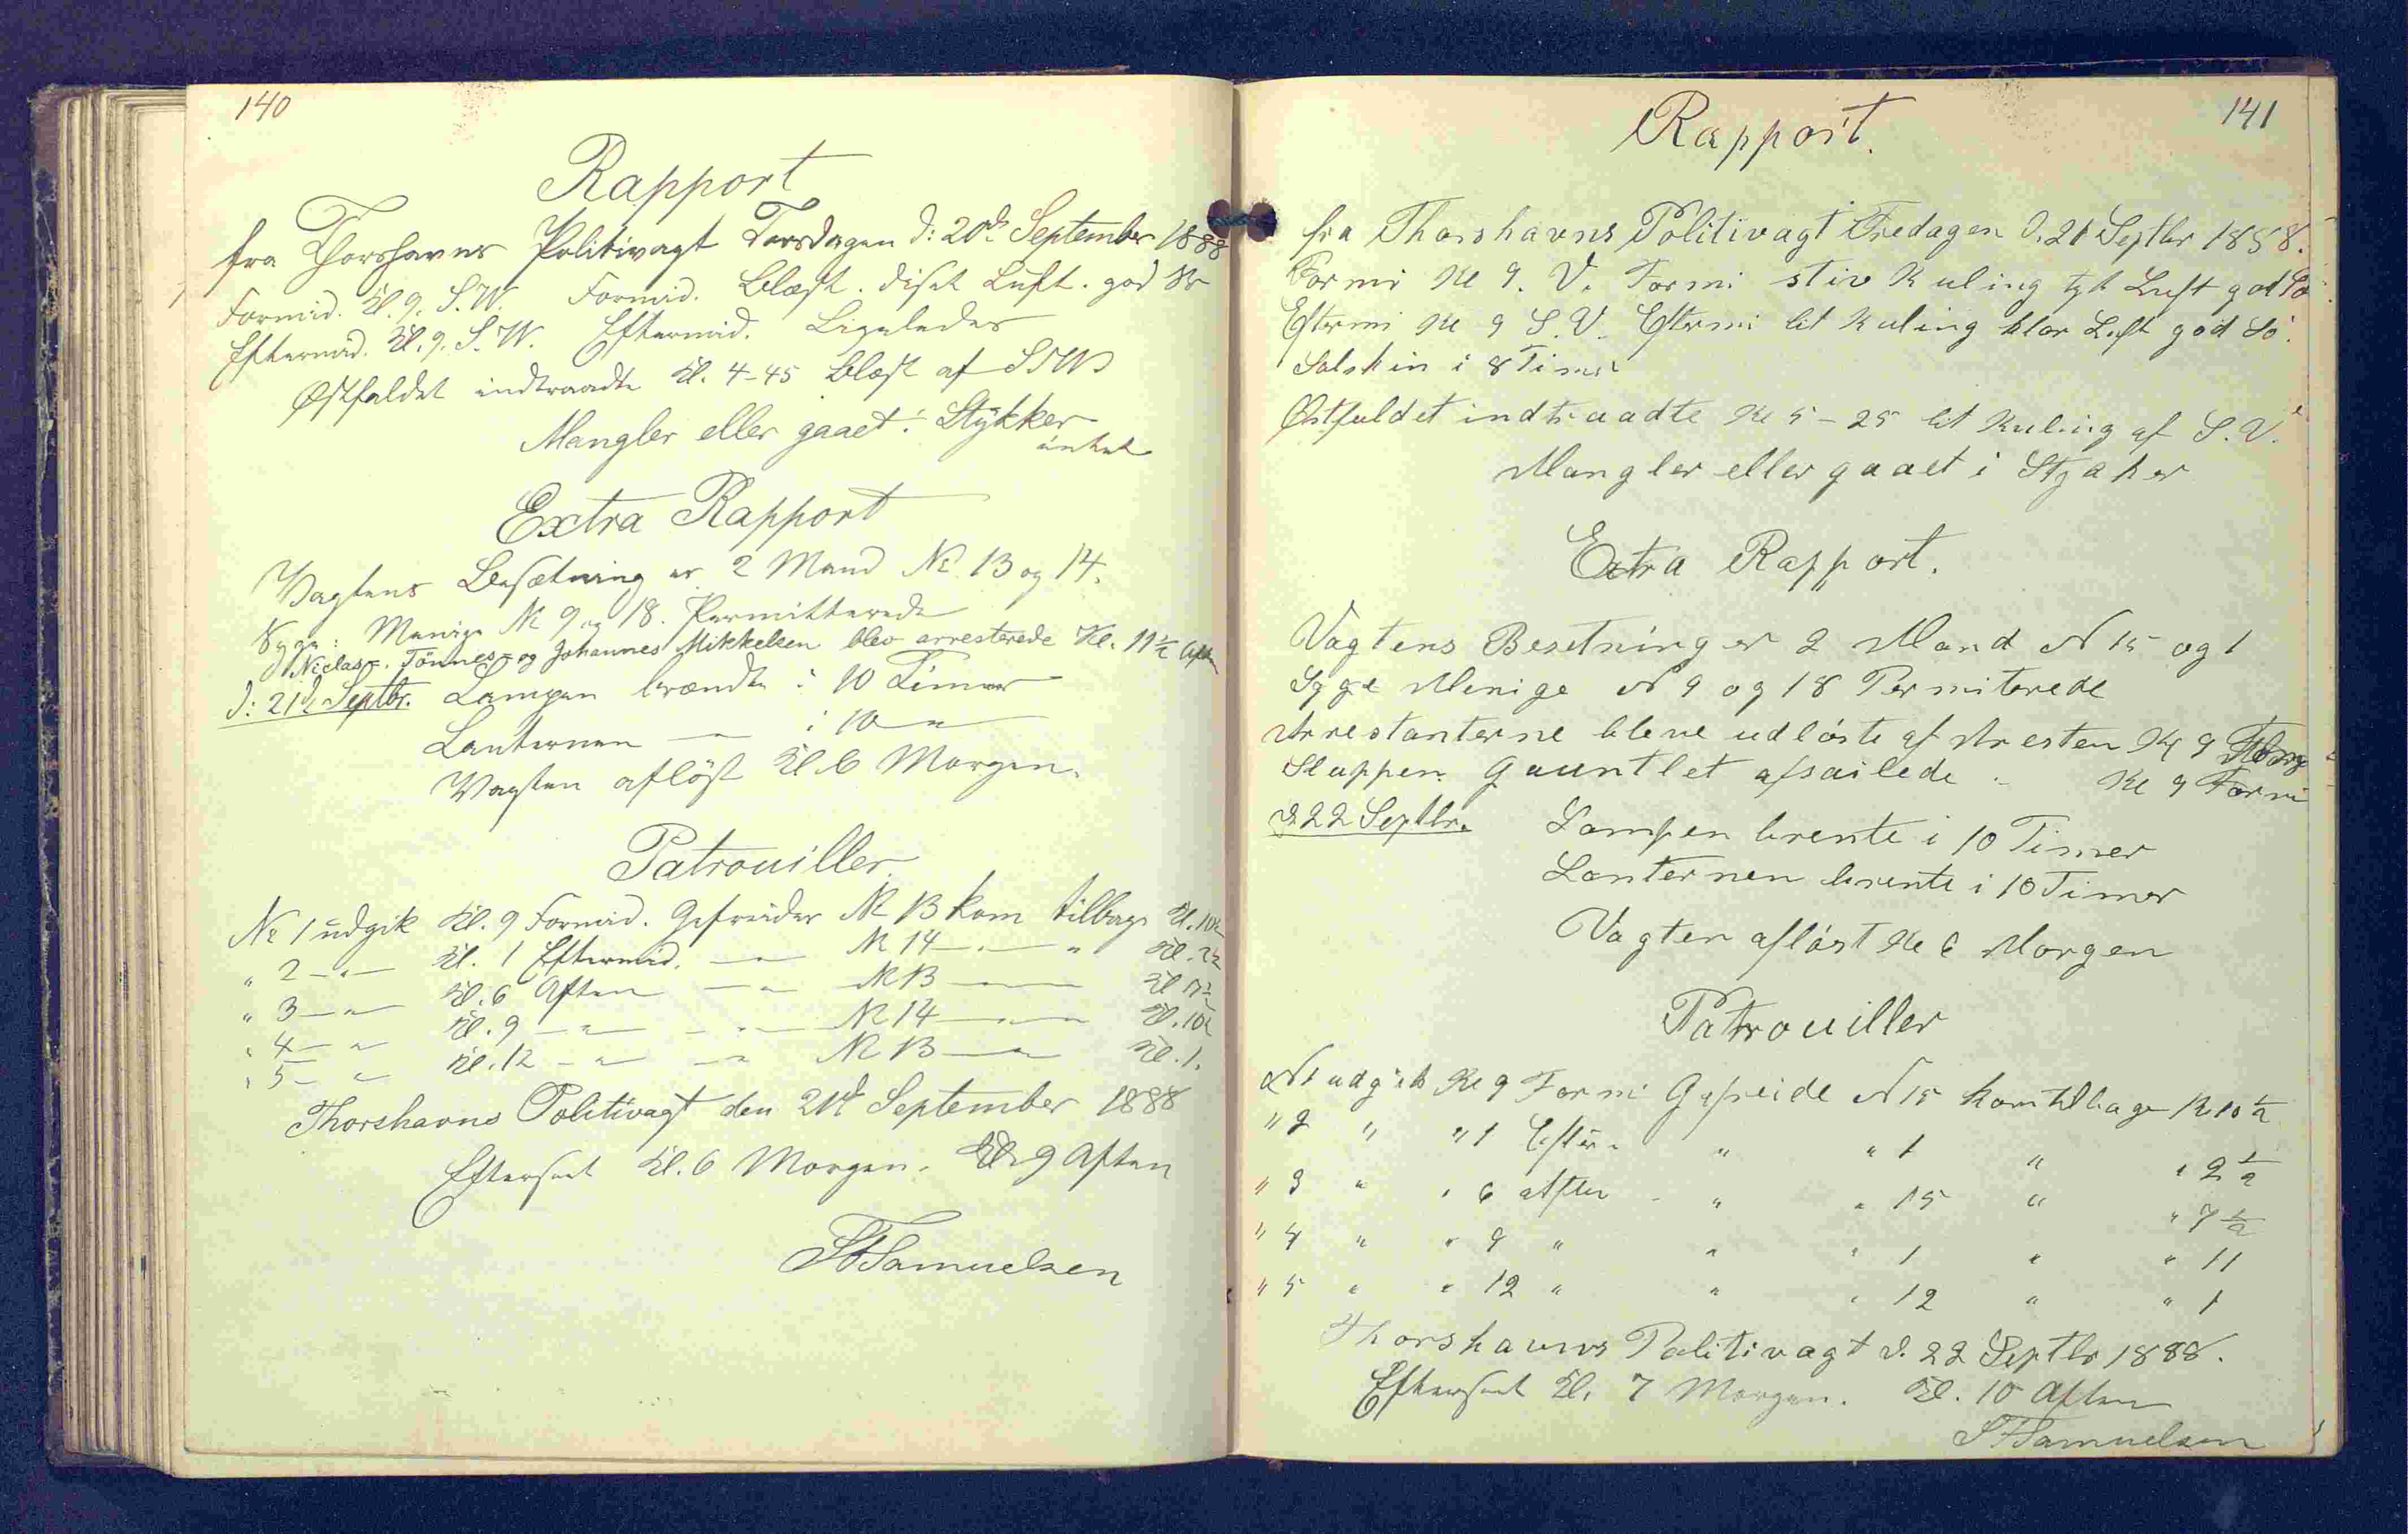 140
Rapport
fra Thorshavns Politivagt Torsdagen d: 20de September 1888
Formid. Kl. 9. S.W. Formid. Blæst. diset Luft. god Sø
Eftermid. Kl. 9. S.W. Eftermid. Ligeledes
Østfaldet indtraadte Kl. 4-45 Blæst af SW
Mangler eller gaaet i Stykker
intet
Extra Rapport
Vagtens Besætning er 2 Mand No 13 og 14.
Syge: Menige No 9 og 18. Permitterede
Niclas J. Tönnes- og Johannes Mikkelsen blev arresterede Kl. 11½ Aften
d: 21de Septbr. Lampen brændte i 10 Timer
Lanternen — " — i 10 — " —
Vagten aflöst Kl. 6 Morgen.
Patrouiller
No 1 udgik Kl. 9 Formid. Gefreider No 13 kom tilbage Kl. 10½
" 2 — " — Kl. 1 Eftermid. — " — No 14 — " — " Kl. 2½
" 3 — " — Kl. 6 Aften — " — No 13 — " — Kl 7½
" 4 — " — Kl. 9 — " — — " — No 14 — " — Kl. 10½
" 5 — " — Kl. 12 — " — — " — No 13 — " — Kl. 1.
Thorshavns Politivagt den 21de September 1888
Efterseet Kl. 6 Morgen. Kl. 9 Aften
Samuelsen
141
Rapport.
fra Thorshavns Politivagt Fredagen d. 21 Septbr 1888.
Formi Kl 9. V. Formi stiv Kuling tyk Luft god Sö
Eftermi Kl 9 S.V. Eftermi lit Kuling klar Luft god Sö.
Solskin i 8 Timer
Østfaldet indtraadte Kl 5-25 lit Kuling af S.V.
Mangler eller gaaet i Stykker
Extra Rapport.
Vagtens Besetning er 2 Mand N 15 og 1
Syge Menige N 9 og 18 Permiterede
Arrestanterne bleve udlöste af Aresten Kl 9
Sluppen Gauntlet afsailede Kl 9 Formi
d. 22 Septbr. Lampen brente i 10 Timer
Lanternen brente i 10 Timer
Vagten aflöst Kl 6 Morgen
Patrouiller
N1 udgik Kl 9 Formi Gefreide N 15 kom tilbage Kl 10½
" 2 " " 1 Efter. " " 1 " " 2½
" 3 " " 6 Aften " " 15 " " 7½
" 4 " " 9 " " " 1 " " 11
" 5 " " 12 " " " 12 " " 1
Thorshavns Politivagt d. 22 Septbr 1888.
Efterseet Kl. 7 Morgen. Kl. 10 Aften
Samuelsen